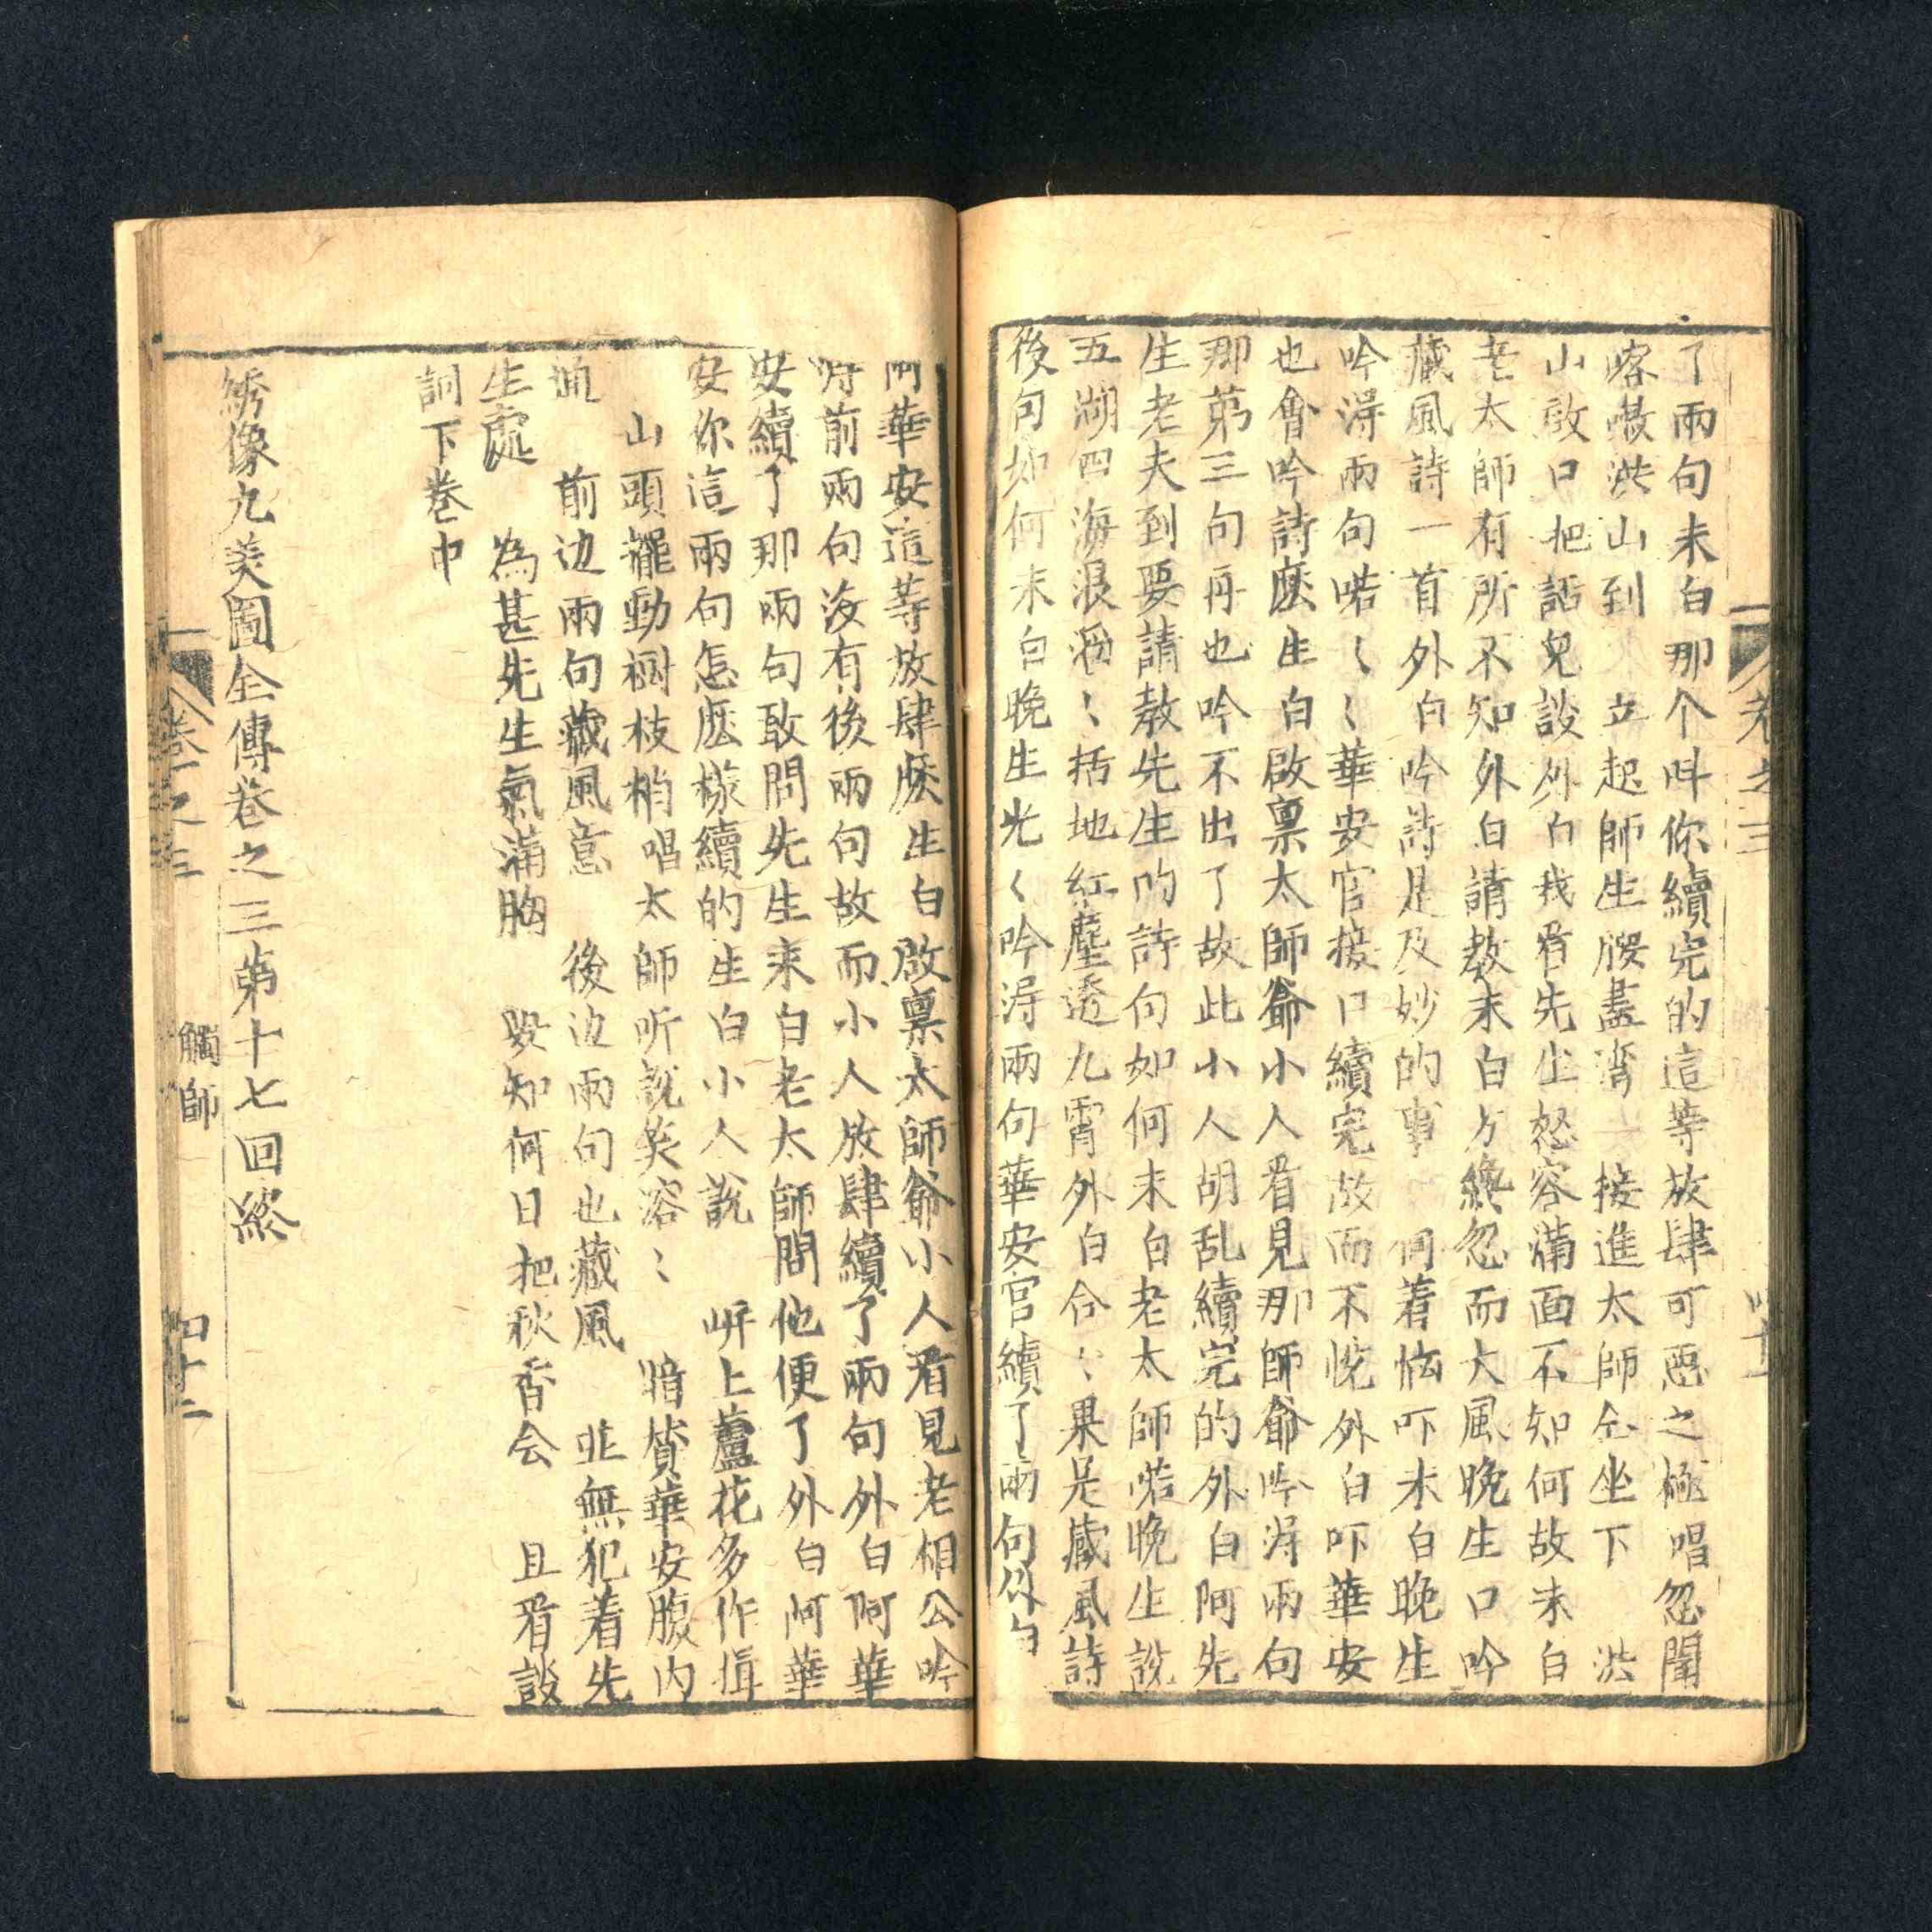 了兩句末白那个呌你續完的這等放肆可惡之極唱忽聞
喀嗽洪山到 立起師生腰盡湾 接進太師仝坐下 洪
山啟口把話兒談外白我看先生怒容滿面不知何故末白
老太師有所不知外白請教末白方纔忽而大風晚生口吟
藏風詩一首外白吟詩是及妙的事 何着恼吓末白晚生
吟淂兩句喏〻〻華安官接口續完故而不悅外白吓華安
也會吟詩麽生白啟禀太師爺小人看見那師爺吟淂兩句
那第三句再也吟不出了故此小人胡乱續完的外白阿先
生老夫到要請教先生的詩句如何末白老太師喏晚生說
五湖四海浪滔〻括地紅塵透九霄外白合〻果是藏風詩
後句如何末白晚生光〻吟淂兩句華安官續了兩句外白
阿華安這等放肆麽生白啟禀太師爺小人看見老相公吟
淂前兩句没有後兩句故而小人放肆續了兩句外白阿華
安續了那兩句敢問先生末白老太師問他便了外白阿華
安你這兩句怎麽樣續的生白小人說 岍上蘆花多作揖
山頭擺動樹枝梢唱太師听說笑溶〻 暗賛華安腹内
通 前边兩句藏風意 後边兩句也藏風 並無犯着先
生處 為甚先生氣滿胸 毁知何日把秋香会 且看談
詞下卷中
綉像九美圖全傳卷之三第十七回終
卷之三 觸師 四十二
卷之三